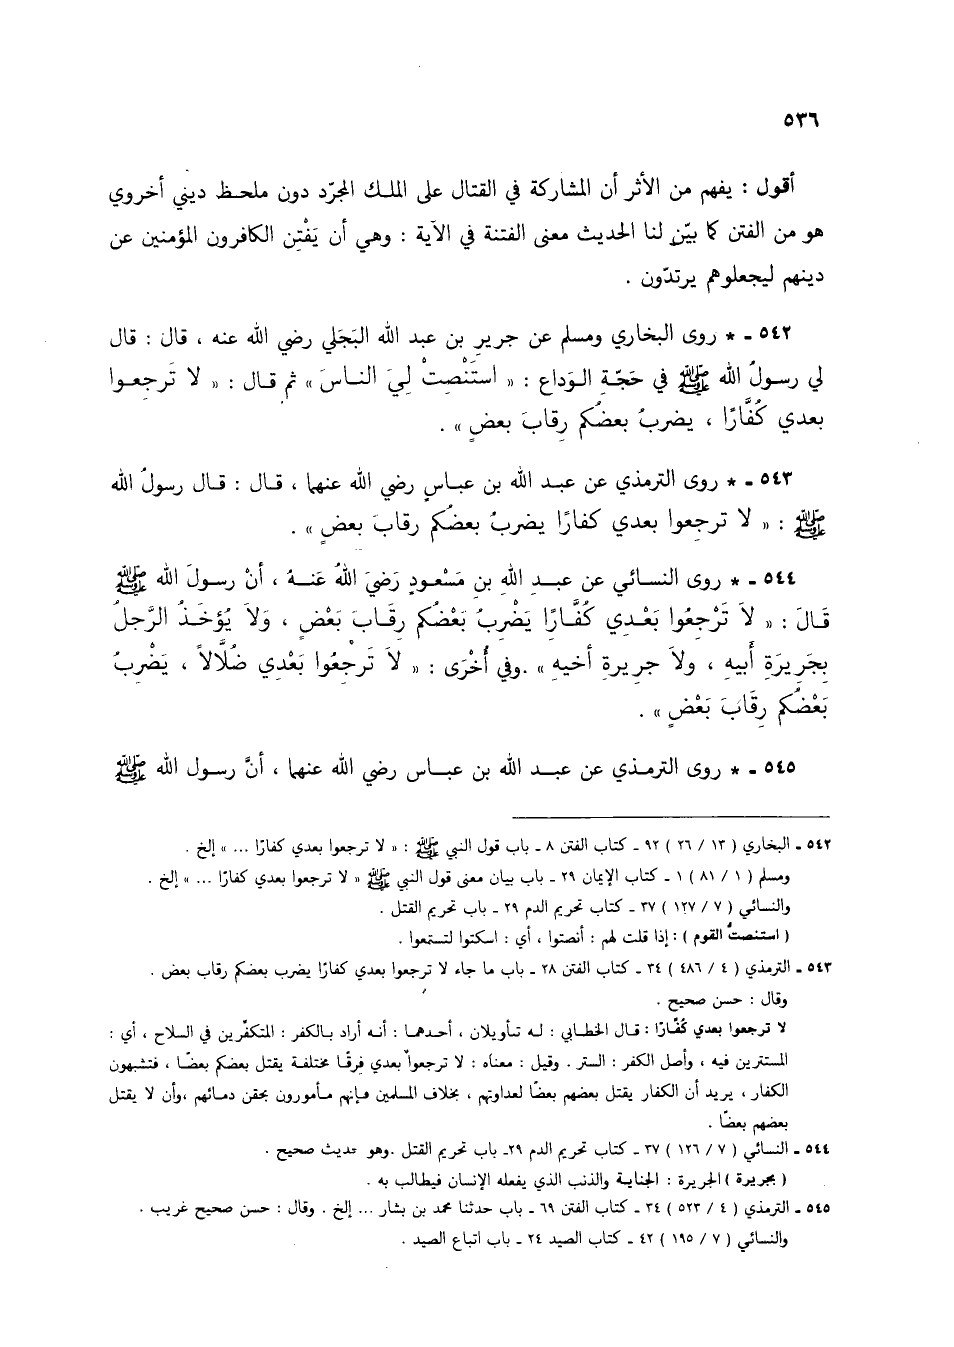 ٥٣٦
أقول : يفهم من الأثر أن المشاركة في القتال على الملك المجرّد دون ملحظ ديني أخروي
هو من الفتن كما بيّن لنا الحديث معنى الفتنة في الآية : وهي أن يَفْتِن الكافرون المؤمنين عن
دينهم ليجعلوهم يرتدّون .
٥٤٢ ـ * روى البخاري ومسلم عن جرير بن عبد الله البَجَلي رضي الله عنه ، قال : قال
لي رسولُ الله ﷺ في حَجّةِ الوَداع : « استَنْصِتْ لِيَ الناسَ » ثم قال : « لا تَرجعوا
بعدي كُفَّارًا ، يضربُ بعضُكم رِقابَ بعضٍ » .
٥٤٣ ـ * روى الترمذي عن عبد الله بن عباسٍ رضي الله عنهما ، قال : قال رسولُ الله
ﷺ : « لا ترجعوا بعدي كفارًا يضربُ بعضُكم رقابَ بعضٍ » .
٥٤٤ ـ * روى النسائي عن عبدِ اللهِ بنِ مَسْعودٍ رَضيَ اللهُ عَنهُ ، أنْ رسولَ الله ﷺ
قَالَ : « لاَ تَرْجِعُوا بَعْدِي كُفَّارًا يَضْرِبُ بَعْضُكم رِقَابَ بَعْضٍ ، وَلاَ يُؤخَذُ الرَّجلُ
بِجَرِيرَةِ أَبيهِ ، ولاَ جريرةِ أخيهِ » .وفي أُخْرَى : « لاَ تَرْجِعُوا بَعْدِي ضُلَّالاً ، يَضْرِبُ
بَعْضُكم رِقَابَ بَعْضٍ » .
٥٤٥ ـ * روى الترمذي عن عبد الله بن عباس رضي الله عنهما ، أنَّ رسول الله ﷺ
٥٤٢ ـ البخاري ( ١٣ / ٢٦ ) ٩٢ ـ كتاب الفتن ٨ ـ باب قول النبي ﷺ : « لا ترجعوا بعدي كفارًا ... » إلخ .
ومسلم ( ١ / ٨١ ) ١ ـ كتاب الإيمان ٢٩ ـ باب بيان معنى قول النبي ﷺ « لا ترجعوا بعدي كفارًا ... » إلخ .
والنسائي ( ٧ / ١٢٧ ) ٣٧ ـ كتاب تحريم الدم ٢٩ ـ باب تحريم القتل .
( استنصتُ القوم ) : إذا قلت لهم : أنصتوا ، أي : اسكتوا لتستمعوا .
٥٤٣ ـ الترمذي ( ٤ / ٤٨٦ ) ٣٤ ـ كتاب الفتن ٢٨ ـ باب ما جاء لا ترجعوا بعدي كفارًا يضرب بعضكم رقاب بعض .
وقال : حسن صحيح .
لا ترجعوا بعدي كُفّارًا : قال الخطابي : له تأويلان ، أحدهما : أنه أراد بالكفر : المتكفّرين في السلاح ، أي :
المستترين فيه ، وأصل الكفر : الستر . وقيل : معناه : لا ترجعوا بعدي فرقًا مختلفة يقتل بعضكم بعضًا ، فتشبهون
الكفار ، يريد أن الكفار يقتل بعضهم بعضًا لعداوتهم ، بخلاف المسلمين فإنهم مأمورون بحقن دمائهم ،وأن لا يقتل
بعضهم بعضًا .
٥٤٤ ـ النسائي ( ٧ / ١٢٦ ) ٣٧ ـ كتاب تحريم الدم ٢٩ـ باب تحريم القتل .وهو حديث صحيح .
( بجريرة ) الجريرة : الجناية والذنب الذي يفعله الإنسان فيطالب به .
٥٤٥ ـ الترمذي ( ٤ / ٥٢٣ ) ٣٤ ـ كتاب الفتن ٦٩ ـ باب حدثنا محمد بن بشار ... إلخ . وقال : حسن صحيح غريب .
والنسائي ( ٧ / ١٩٥ ) ٤٢ ـ كتاب الصيد ٢٤ ـ باب اتباع الصيد .